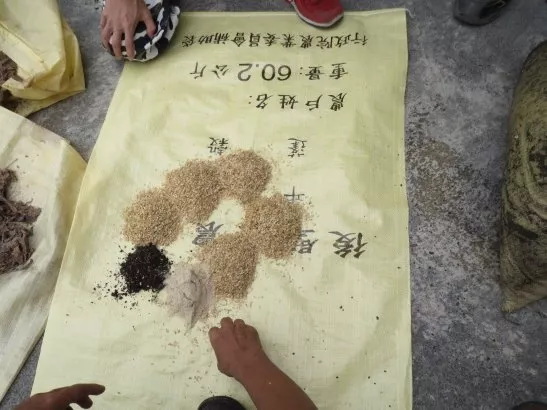 後壁農
蓬 穀
農戶姓名:
重量: 60.2 公斤
行政院農業委員會補助袋